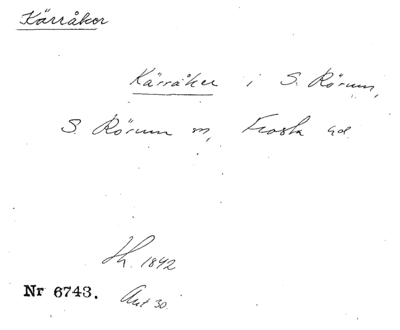 Kärråker
Kärråker i S. Rörum,
S. Rörum sn, Frosta hd
1842
Nr 6743.
Ant 30.